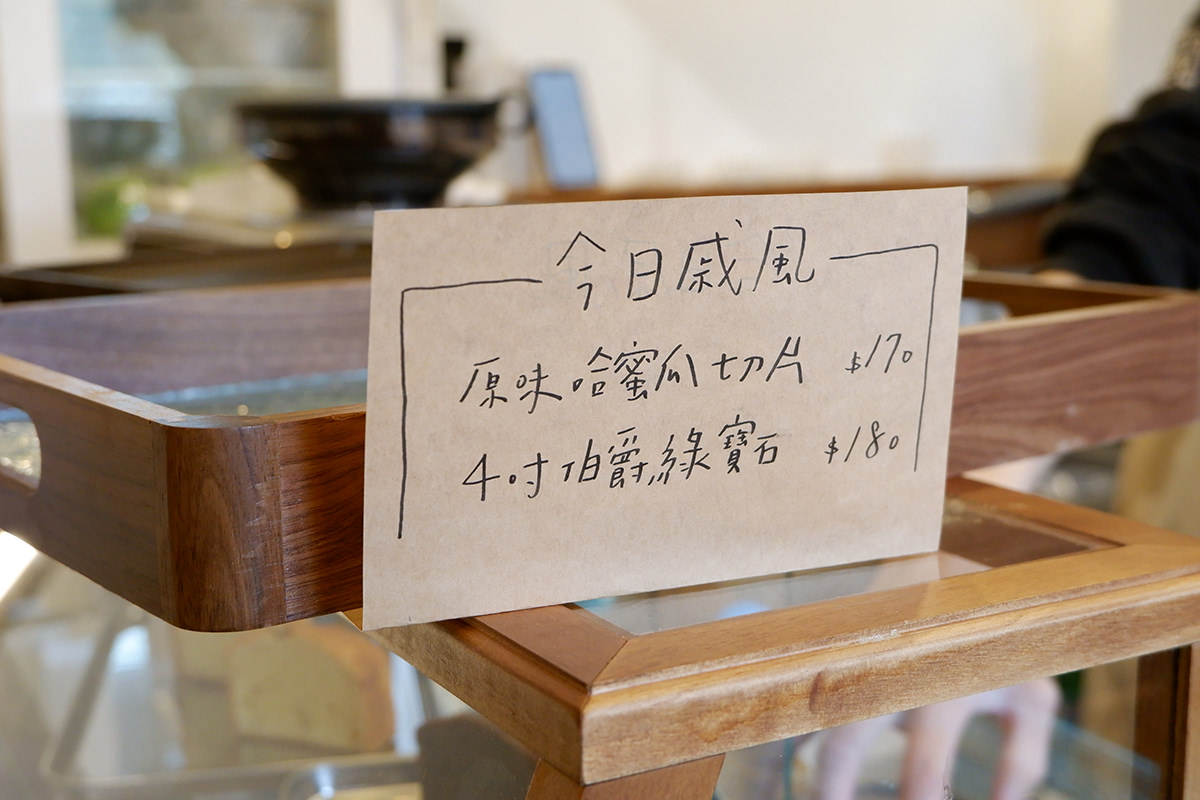 今日戚風
原味哈蜜瓜切片 $170
4吋伯爵綠寶石 $180